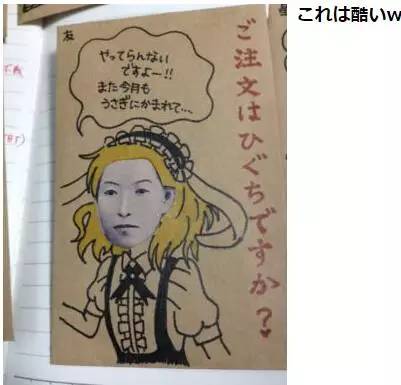 これは酷いw
友
やってらんない
ですよー!!
また今月も
うさぎにかまれて…
ご注文はひぐちですか?